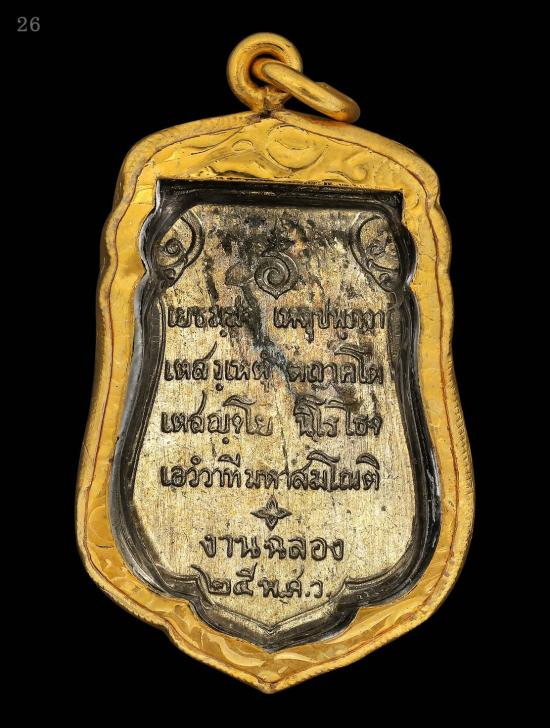 26
เยธมฺมา เหตุปฺปภวา
เตสํเหตุํ ตถาคโต
เตสญฺจโย นิโรโธจ
เอวํวาทีมหาสมโณติ
งานฉลอง
๒๕ พ.ศ.ว.